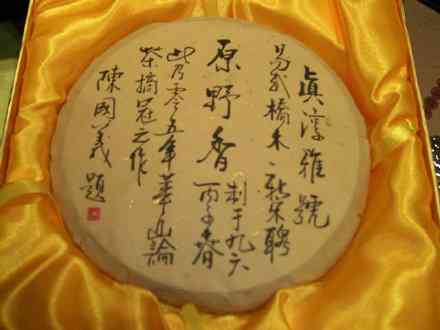 真淳雅號
易武橋木
原野香
制于九六
丙子春
此乃零五年華山論
茶摘冠之作
陳國義題